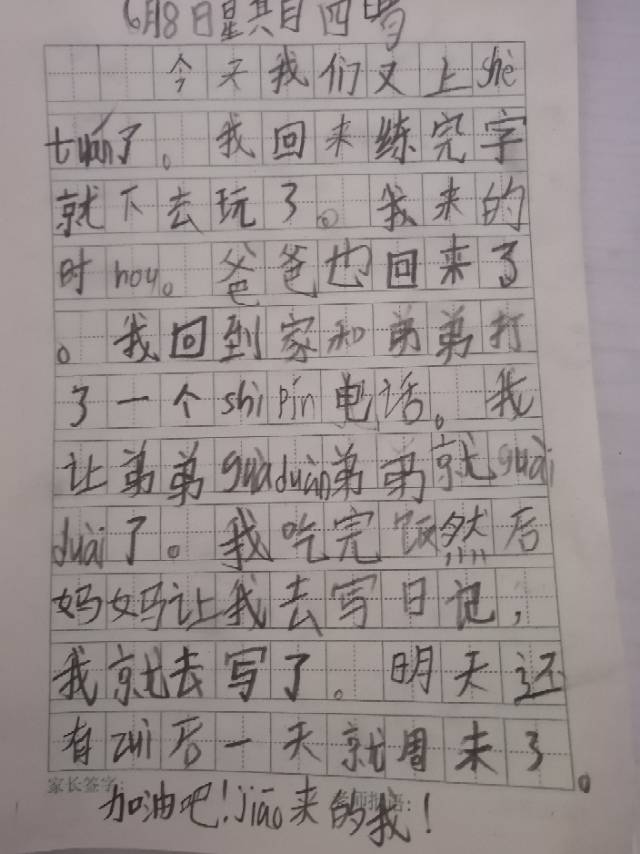 6月8日星其日 四 晴
今天我们又上shè
tuán了。我回来练完字
就下去玩了。我来的
时hou。爸爸也回来了
。我回到家和弟弟打
了一个shì pín电话。我
让弟弟guàduàn弟弟就guài
duài了。我吃完饭然后
妈妈让我去写日记，
我就去写了。明天还
有zuì后一天就周末了。
家长签字：
加油吧！jiāo来的我！